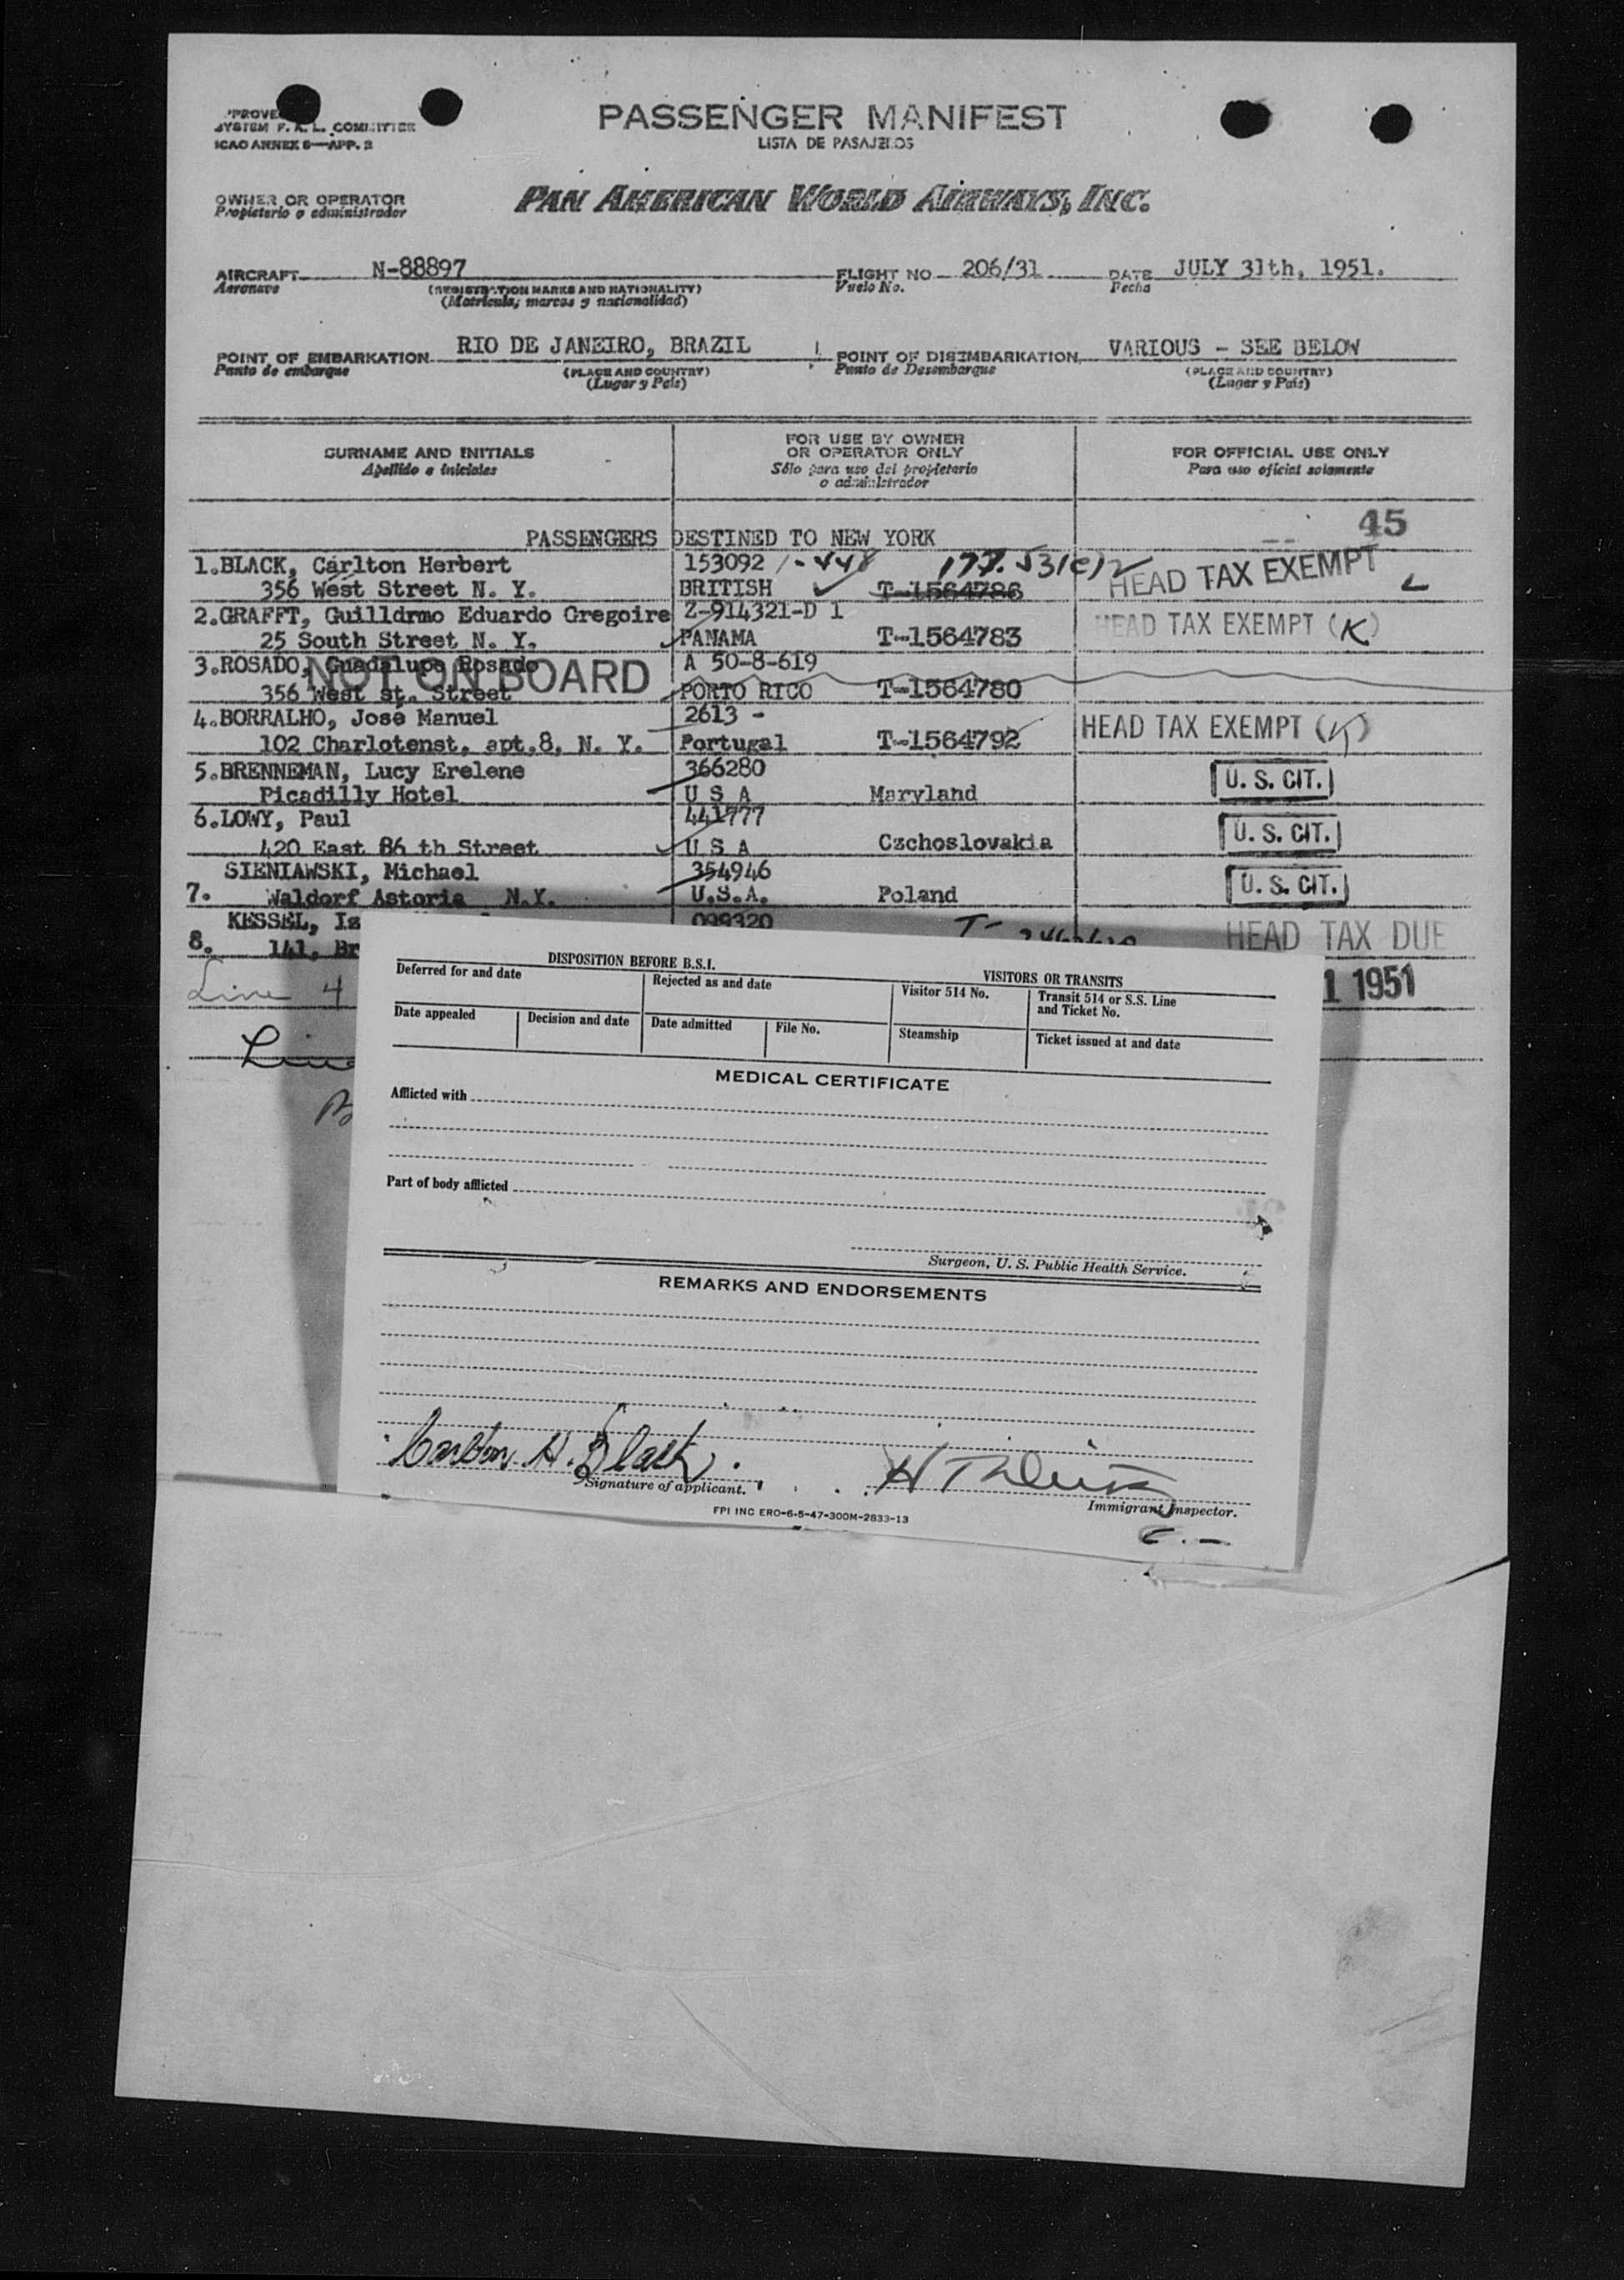 SYSTEM F. A. L. COMMITTEE
ICAO ANNEX 6—APP. 2
PASSENGER MANIFEST
LISTA DE PASAJEROS
OWNER OR OPERATOR
Propietario o administrador
PAN AMERICAN WORLD AIRWAYS, INC.
AIRCRAFT N-88897 FLIGHT NO 206/31 DATE JULY 31th, 1951.
Aeronave (REGISTRATION MARKS AND NATIONALITY) Vuelo No. Fecha
(Matrícula; marcas y nacionalidad)
POINT OF EMBARKATION RIO DE JANEIRO, BRAZIL POINT OF DISEMBARKATION VARIOUS - SEE BELOW
Punto de embarque (PLACE AND COUNTRY) Punto de Desembarque (PLACE AND COUNTRY)
(Lugar y País) (Lugar y País)
SURNAME AND INITIALS FOR USE BY OWNER OR OPERATOR ONLY FOR OFFICIAL USE ONLY
Apellido e iniciales Sólo para uso del propietario o administrador Para uso oficial solamente
45
PASSENGERS DESTINED TO NEW YORK
1.BLACK, Carlton Herbert 153092 1-448 177.531(c)2 HEAD TAX EXEMPT
356 West Street N. Y. BRITISH T-1564786
2.GRAFFT, Guilldrmo Eduardo Gregoire Z-914321-D 1 HEAD TAX EXEMPT (K)
25 South Street N. Y. PANAMA T-1564783
3.ROSADO, Guadalupe Rosado A 50-8-619
NOT ON BOARD
356 West st. Street PORTO RICO T-1564780
4.BORRALHO, José Manuel 2613 - HEAD TAX EXEMPT (K)
102 Charlotenst. apt.8, N. Y. Portugal T-1564792
5.BRENNEMAN, Lucy Erelene 366280 U. S. CIT.
Picadilly Hotel U S A Maryland
6.LOWY, Paul 441777 U. S. CIT.
420 East 86 th Street U S A Czchoslovakia
SIENIAWSKI, Michael 354946 U. S. CIT.
7. Waldorf Astoria N.Y. U.S.A. Poland
KESSEL, Iz 099320 T- HEAD TAX DUE
8. 141, Br
Line 4
1 1951
Line
DISPOSITION BEFORE B.S.I. VISITORS OR TRANSITS
Deferred for and date Rejected as and date Visitor 514 No. Transit 514 or S.S. Line and Ticket No.
Date appealed Decision and date Date admitted File No. Steamship Ticket issued at and date
MEDICAL CERTIFICATE
Afflicted with
Part of body afflicted
Surgeon, U. S. Public Health Service.
REMARKS AND ENDORSEMENTS
Carlton H. Black.
Signature of applicant. Immigrant Inspector.
FPI INC ERO-6-5-47-300M-2833-13